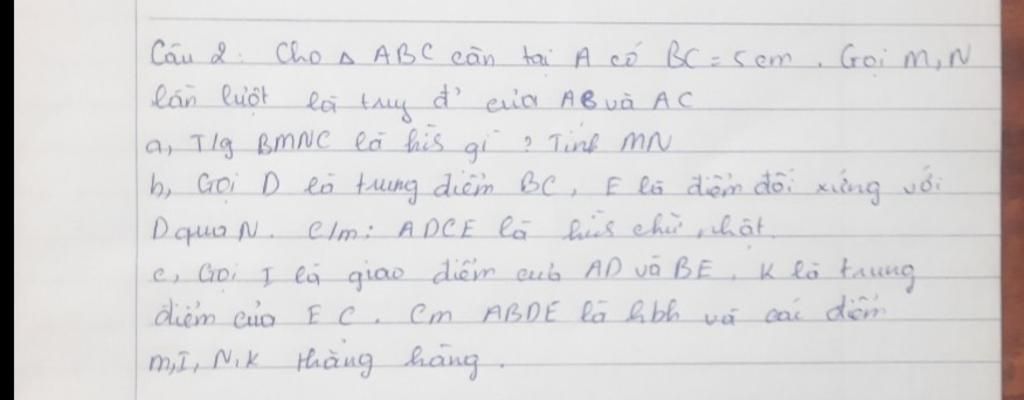 Câu 2: Cho △ ABC cân tại A có BC = 5 cm. Gọi M, N
lần lượt là truy đ' của AB và AC
a, T/g BMNC là hìs gì ? Tính MN
b, Gọi D là trung điểm BC, E là điểm đối xứng với
D qua N. C/m: ADCE là hìs chữ nhật.
c, Gọi I là giao điểm của AD và BE, K là trung
điểm của EC. Cm ABDE là hbh và các điểm
M, I, N, K thẳng hàng.